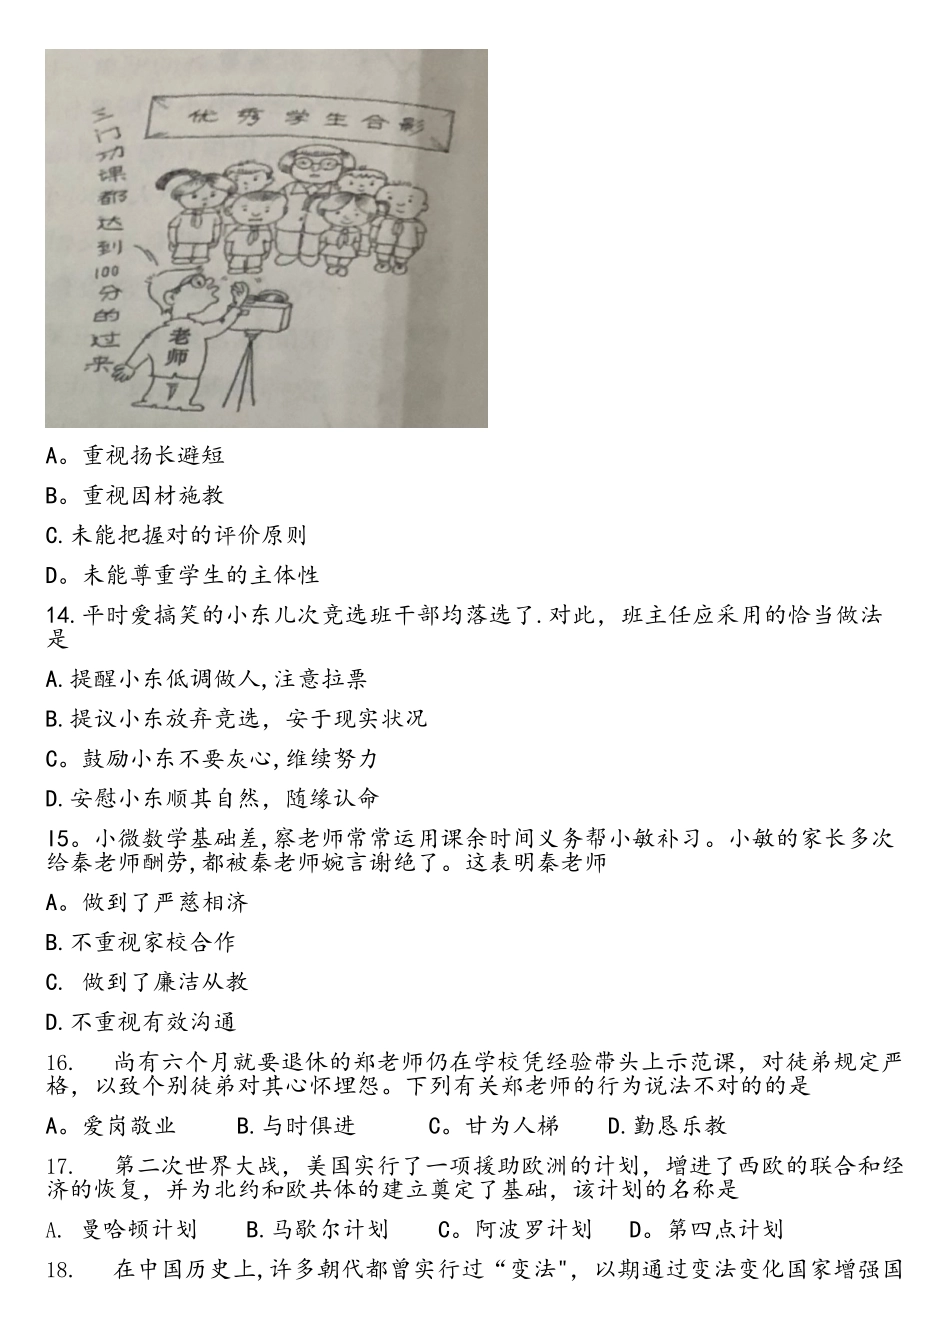 优秀学生合影
三门功课都达到100分的过来
老师
A。重视扬长避短
B。重视因材施教
C.未能把握对的评价原则
D。未能尊重学生的主体性
14.平时爱搞笑的小东儿次竞选班干部均落选了.对此，班主任应采用的恰当做法
是
A.提醒小东低调做人,注意拉票
B.提议小东放弃竞选，安于现实状况
C。鼓励小东不要灰心,维续努力
D.安慰小东顺其自然，随缘认命
I5。小微数学基础差,察老师常常运用课余时间义务帮小敏补习。小敏的家长多次
给秦老师酬劳,都被秦老师婉言谢绝了。这表明秦老师
A。做到了严慈相济
B.不重视家校合作
C. 做到了廉洁从教
D.不重视有效沟通
16. 尚有六个月就要退休的郑老师仍在学校凭经验带头上示范课，对徒弟规定严
格，以致个别徒弟对其心怀埋怨。下列有关郑老师的行为说法不对的的是
A。爱岗敬业 B.与时俱进 C。甘为人梯 D.勤恳乐教
17. 第二次世界大战，美国实行了一项援助欧洲的计划，增进了西欧的联合和经
济的恢复，并为北约和欧共体的建立奠定了基础，该计划的名称是
A. 曼哈顿计划 B.马歇尔计划 C。阿波罗计划 D。第四点计划
18. 在中国历史上,许多朝代都曾实行过“变法"，以期通过变法变化国家增强国